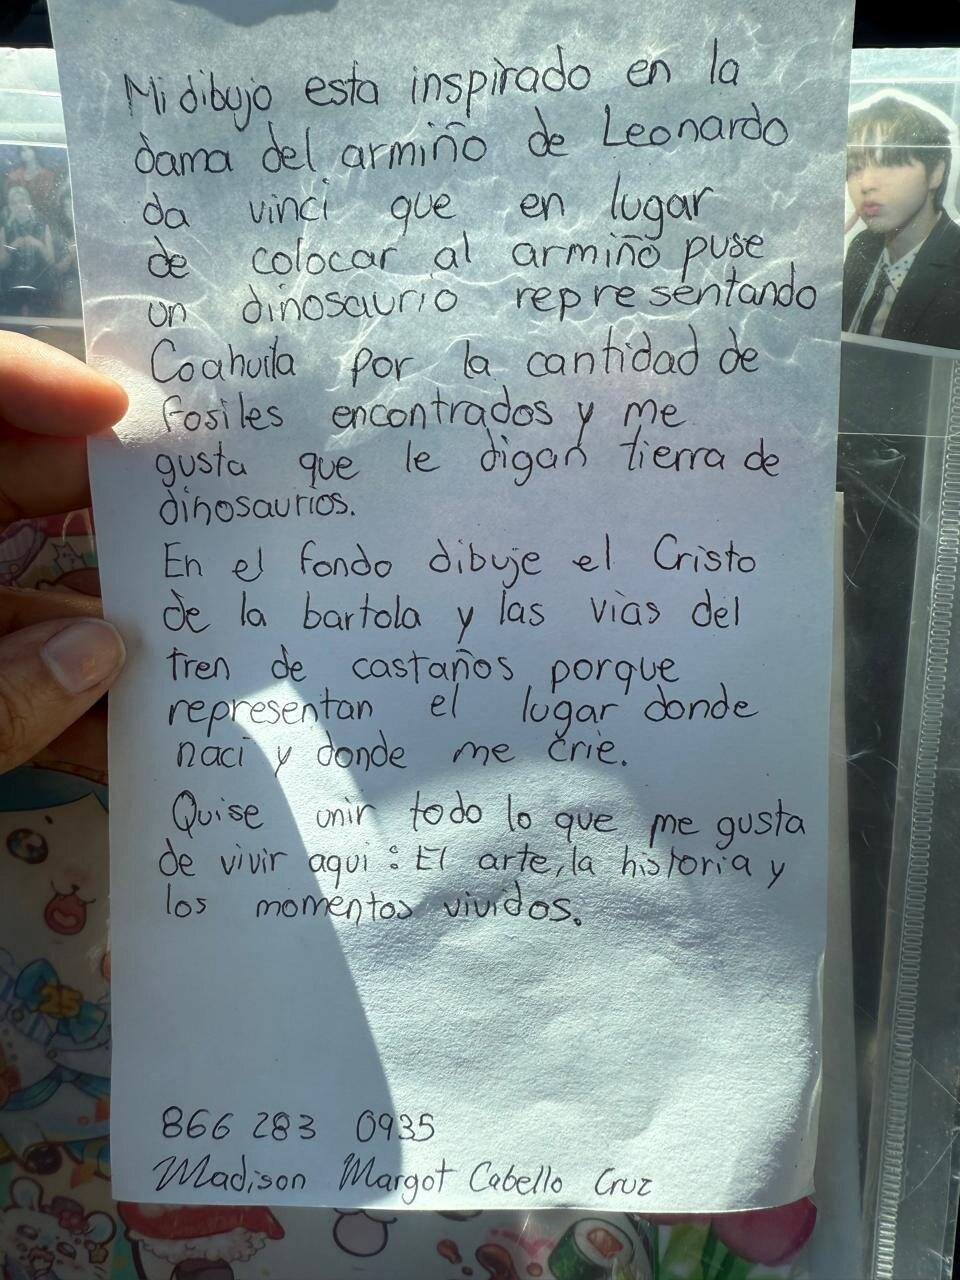 Mi dibujo esta inspirado en la
dama del armiño de Leonardo
da vinci que en lugar
de colocar al armiño puse
un dinosaurio representando
Coahuila por la cantidad de
fosiles encontrados y me
gusta que le digan tierra de
dinosaurios.
En el fondo dibuje el Cristo
de la bartola y las vias del
tren de castaños porque
representan el lugar donde
naci y donde me crie.
Quise unir todo lo que me gusta
de vivir aqui: El arte, la historia y
los momentos vividos.
866 283 0935
Madison Margot Cabello Cruz